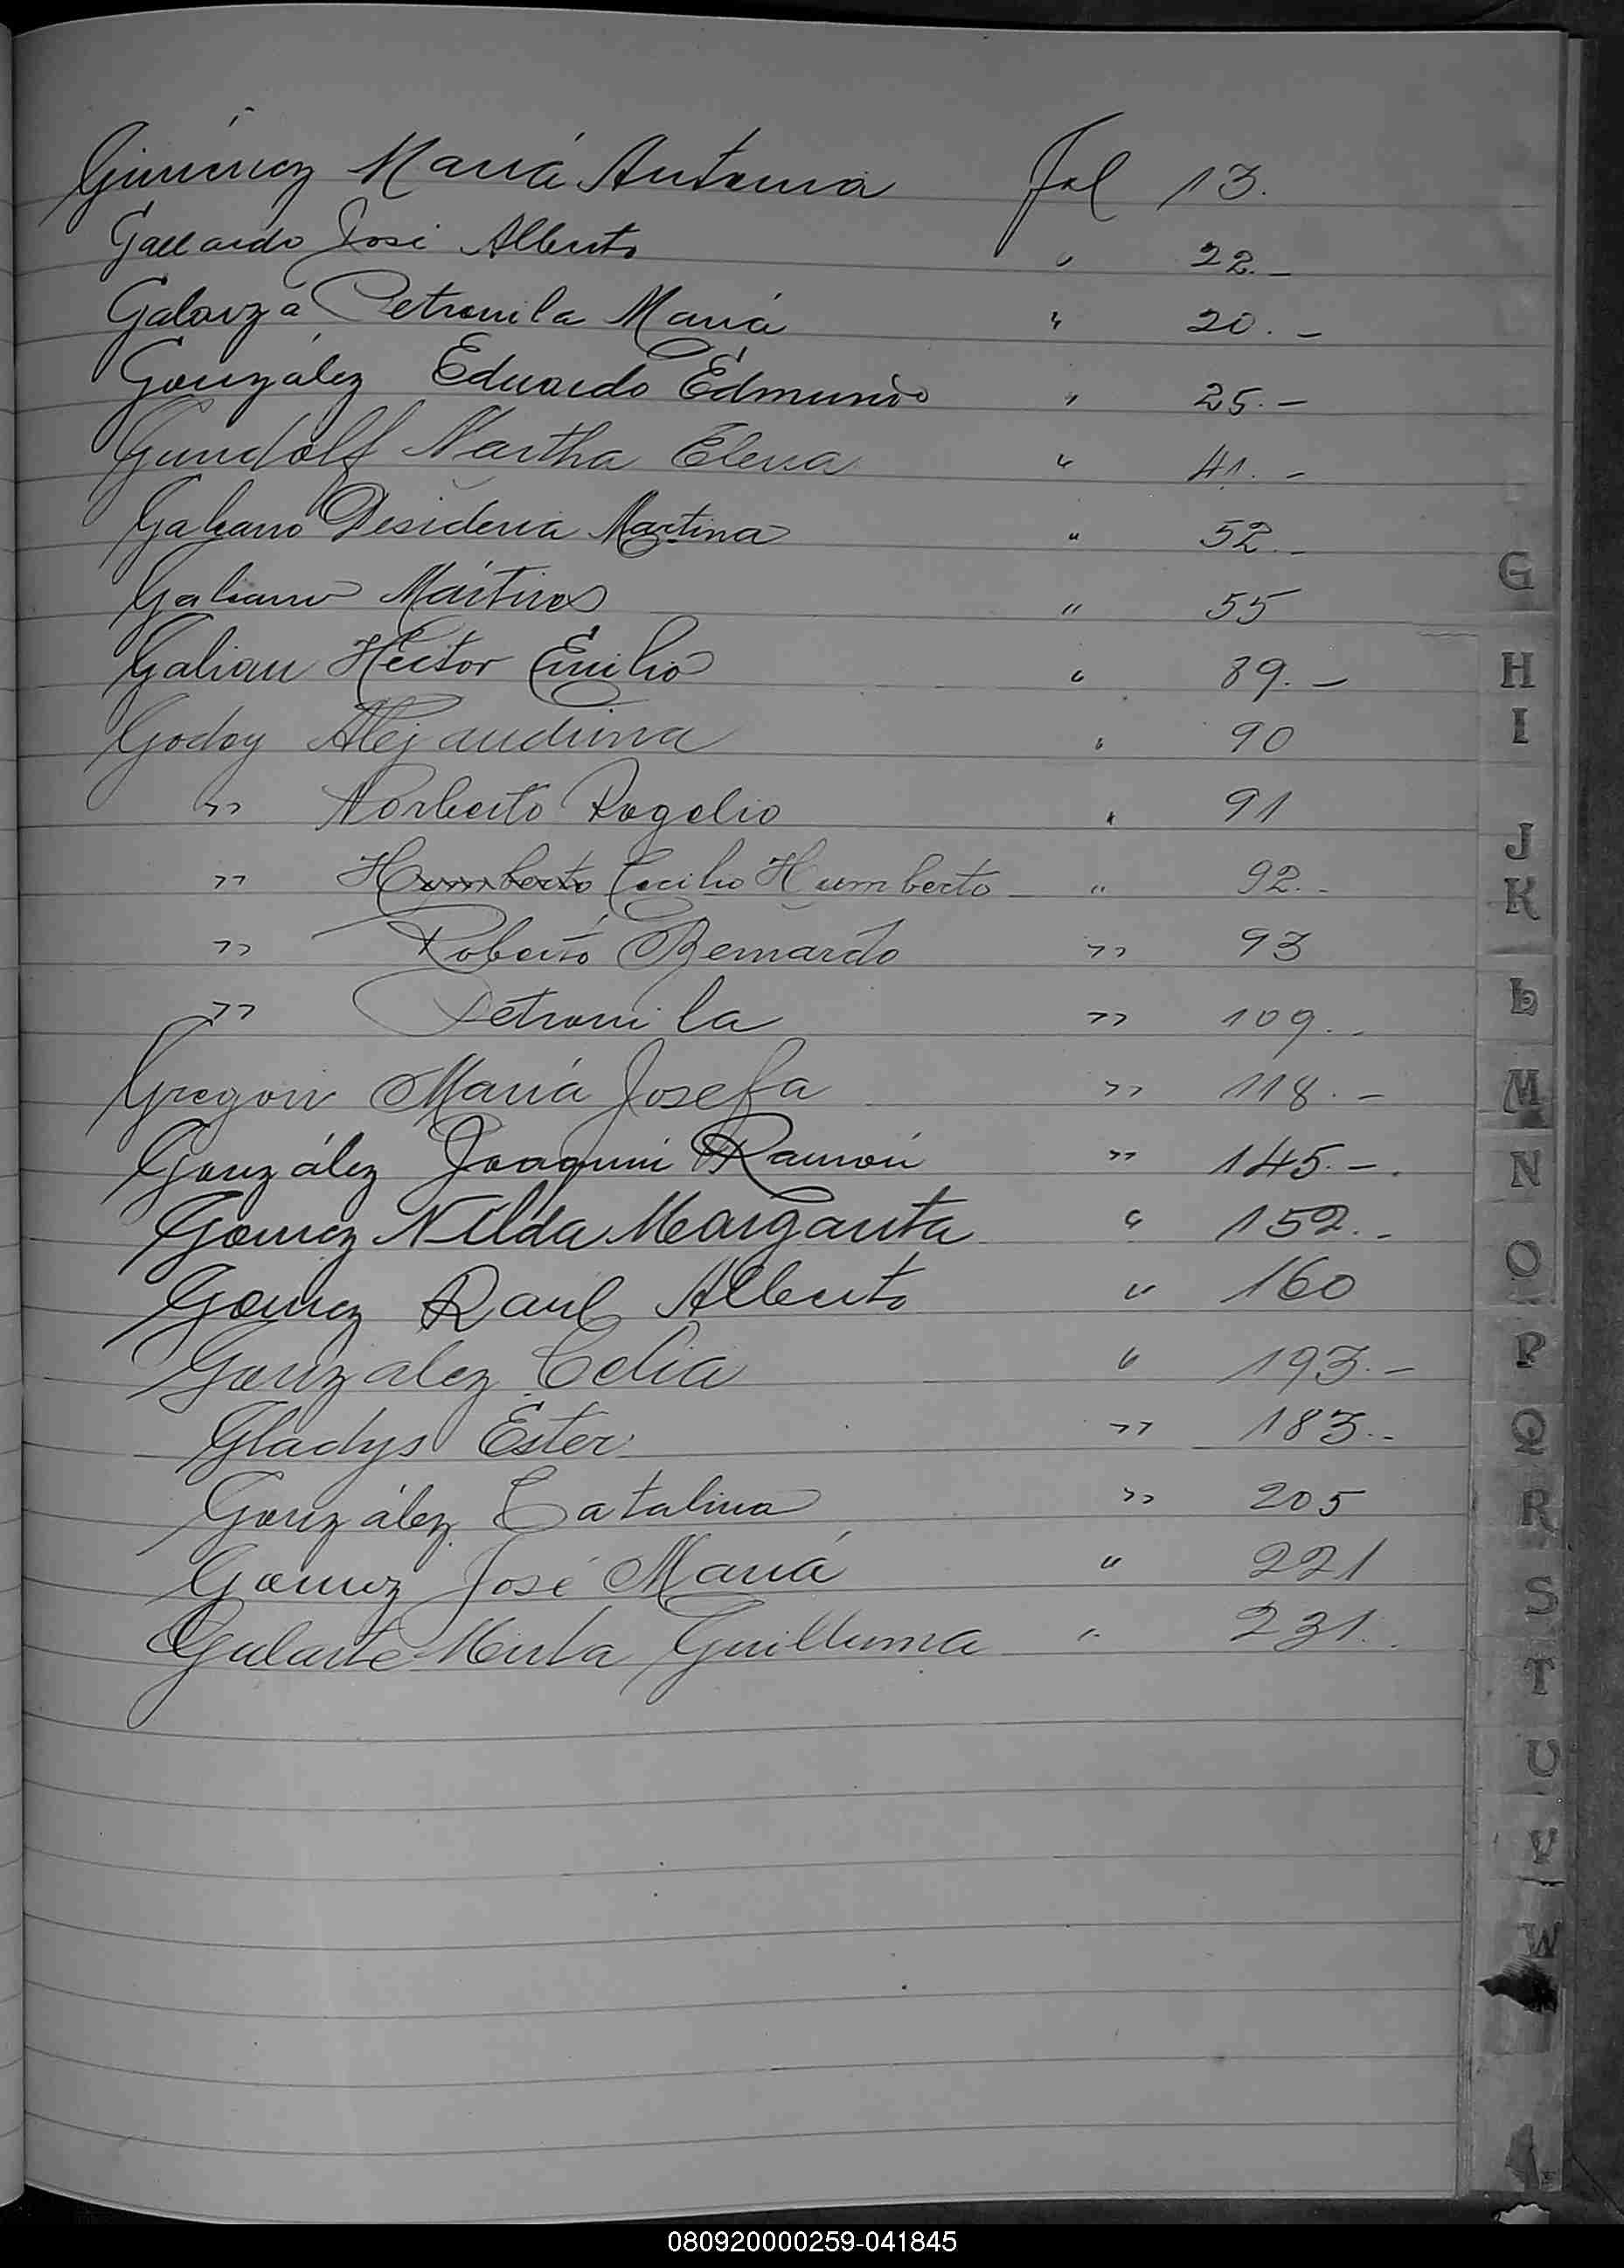 Giménez María Antonia Fol 13.
Gallardo José Alberto " 22.-
Galarza Petronila María " 20.-
González Eduardo Edmundo " 25.-
Gundolf Martha Elena " 41.-
Galeano Desideria Martina " 52.-
Galiano Mártires " 55
Galian Héctor Emilio " 89.-
Godoy Alejandrina " 90
" Norberto Rogelio " 91
" Humberto Cecilio Humberto " 92.-
" Roberto Bernardo " 93
" Petronila " 109.-
Gregori María Josefa " 118.-
González Joaquín Ramón " 145.-.
Gomez Nilda Margarita " 152.-
Gomez Raul Alberto " 160
Gonzalez Celia " 193.-
Gladys Ester " 183.-
González Catalina " 205
Gomez José María " 221
Galarte Mirta Guillerma " 231..
G
H
I
J
K
L
M
N
O
P
Q
R
S
T
U
V
W
080920000259-041845